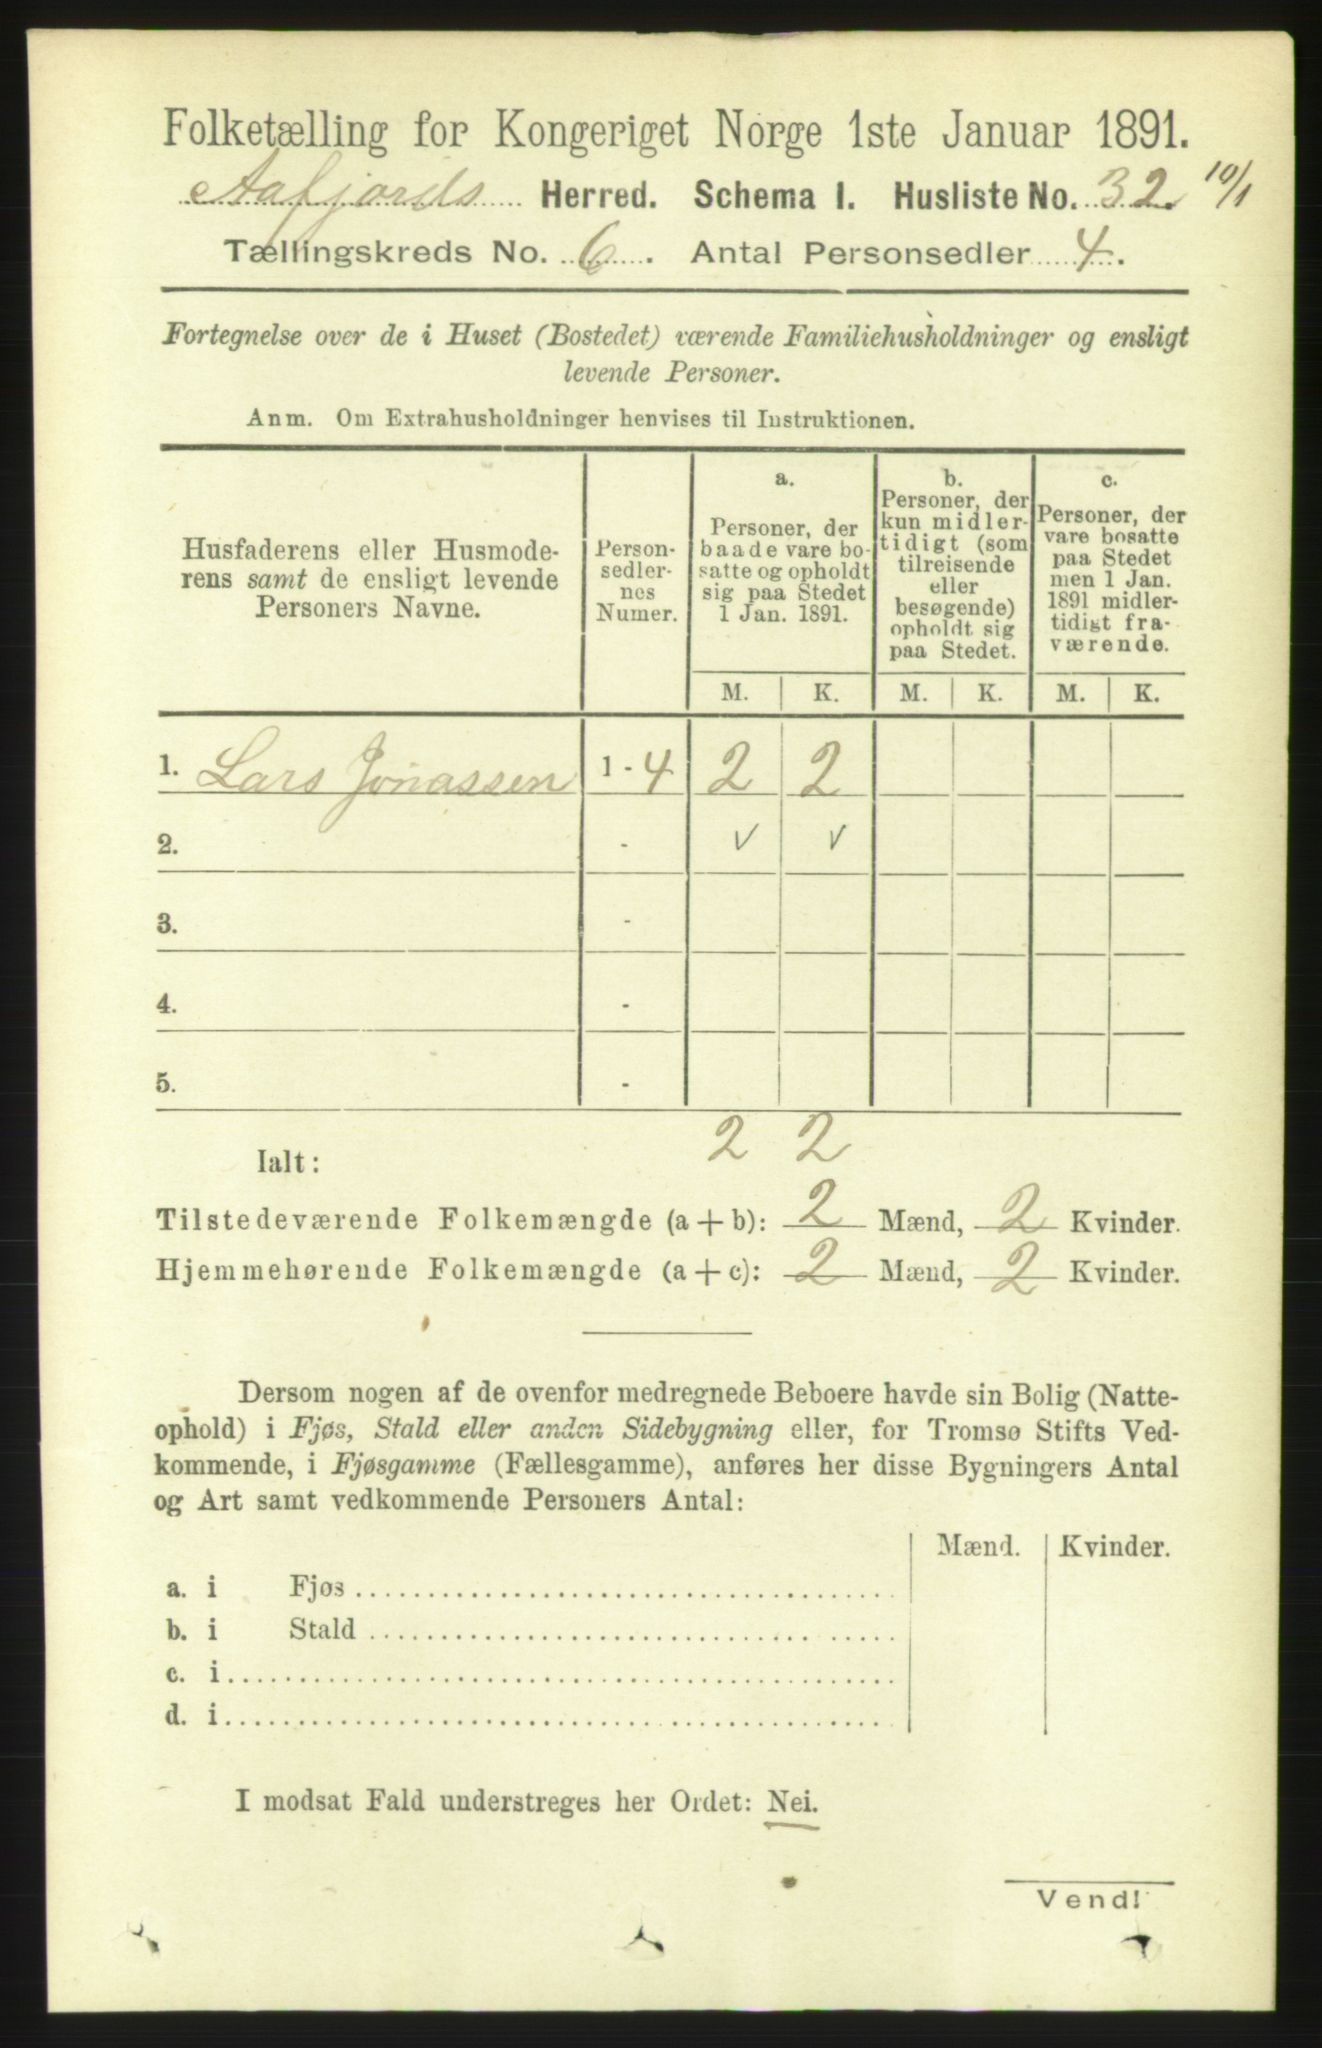 Folketælling for Kongeriget Norge 1ste Januar 1891.
Aafjords Herred. Schema I. Husliste No. 32. 10/1
Tællingskreds No. 6. Antal Personsedler 4.
Fortegnelse over de i Huset (Bostedet) værende Familiehusholdninger og ensligt
levende Personer.
Anm. Om Extrahusholdninger henvises til Instruktionen.
Husfaderens eller Husmode-
rens samt de ensligt levende
Personers Navne.
Person-
sedler-
nes
Numer.
a.
Personer, der
baade vare bo-
satte og opholdt
sig paa Stedet
1 Jan. 1891.
b.
Personer, der
kun midler-
tidigt (som
tilreisende
eller
besøgende)
opholdt sig
paa Stedet.
c.
Personer, der
vare bosatte
paa Stedet
men 1 Jan.
1891 midler-
tidigt fra-
værende.
M. K. M. K. M. K.
1. Lars Jonassen 1 - 4 2 2
2. - v v
3. -
4. -
5. -
Ialt: 2 2
Tilstedeværende Folkemængde (a + b): 2 Mænd, 2 Kvinder.
Hjemmehørende Folkemængde (a + c): 2 Mænd, 2 Kvinder.
Dersom nogen af de ovenfor medregnede Beboere havde sin Bolig (Natte-
ophold) i Fjøs, Stald eller anden Sidebygning eller, for Tromsø Stifts Ved-
kommende, i Fjøsgamme (Fællesgamme), anføres her disse Bygningers Antal
og Art samt vedkommende Personers Antal:
Mænd. Kvinder.
a. i Fjøs
b. i Stald
c. i
d. i
I modsat Fald understreges her Ordet: Nei.
Vend!